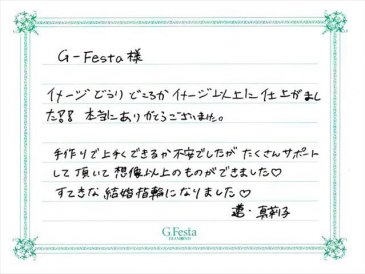 G-Festa 様
イメージどうりどころかイメージ以上に仕上がまし
た!! 本当にありがとうございました。
手作りで上手くできるか不安でしたが たくさんサポート
して頂いて想像以上のものができました♡
すてきな結婚指輪になりました♡
真莉子
G.Festa
DIAMOND